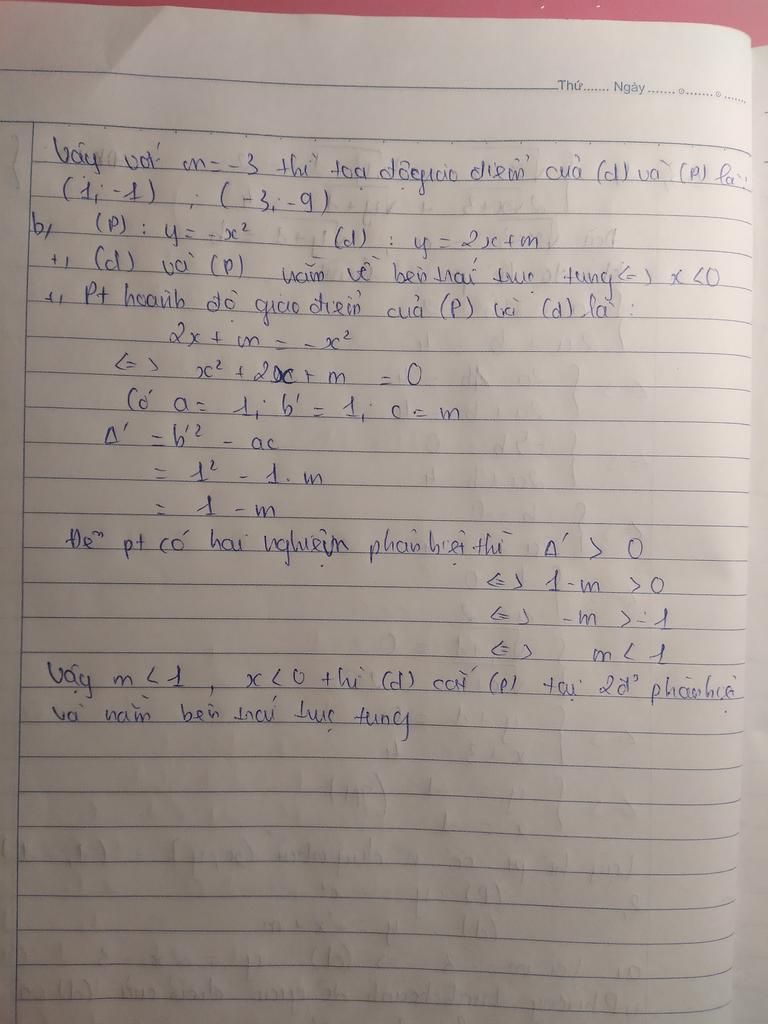 Thứ....... Ngày.......
Vậy với m = -3 thì toạ độ giao điểm của (d) và (P) là:
(1; -1) ; (-3; -9)
b, (P): y = -x² (d): y = 2x+m
+, (d) và (P) nằm về bên trái trục tung <=> x<0
+, Pt hoành độ giao điểm của (P) và (d) là:
2x + m = -x²
<=> x² + 2x + m = 0
Có a = 1; b' = 1; c = m
Δ' = b'² - ac
= 1² - 1. m
= 1 - m
Để pt có hai nghiệm phân biệt thì Δ' > 0
<=> 1-m > 0
<=> -m > -1
<=> m < 1
Vậy m < 1, x<0 thì (d) cắt (P) tại 2đ' phân biệt
và nằm bên trái trục tung